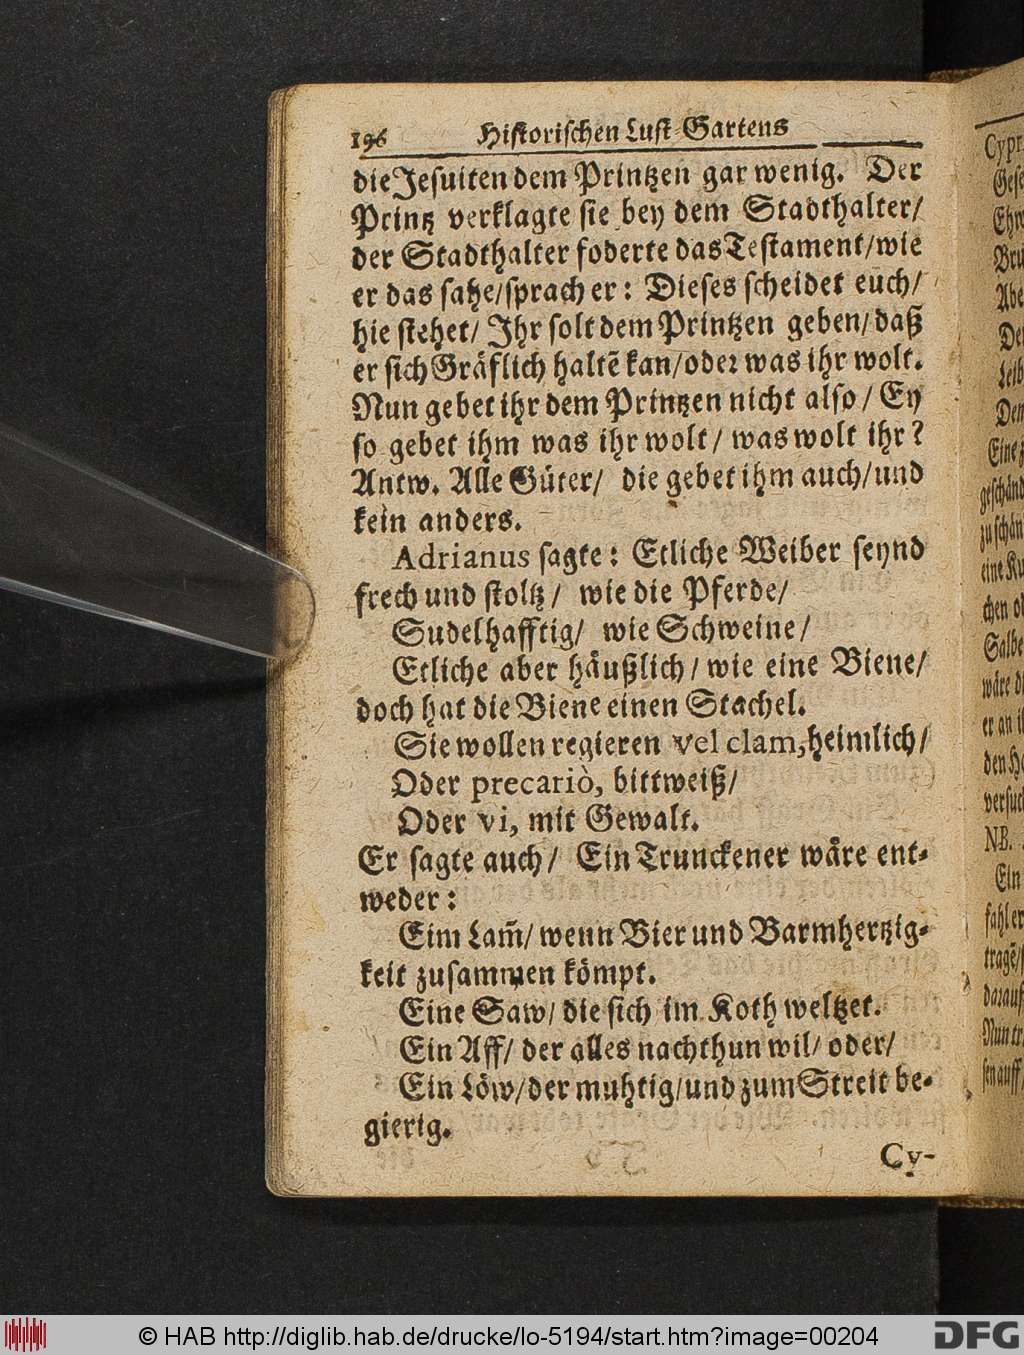 196 Historischen Lust-Gartens
die Jesuiten dem Printzen gar wenig. Der
Printz verklagte sie bey dem Stadthalter/
der Stadthalter foderte das Testament/wie
er das sahe/sprach er: Dieses scheidet euch/
hie stehet/ Ihr solt dem Printzen geben/daß
er sich Gräflich haltē kan/oder was ihr wolt.
Nun gebet ihr dem Printzen nicht also/ Ey
so gebet ihm was ihr wolt/ was wolt ihr?
Antw. Alle Güter/ die gebet ihm auch/und
kein anders.
Adrianus sagte: Etliche Weiber seynd
frech und stoltz/ wie die Pferde/
Sudelhafftig/ wie Schweine/
Etliche aber häußlich/ wie eine Biene/
doch hat die Biene einen Stachel.
Sie wollen regieren vel clam, heimlich/
Oder precariò, bittweiß/
Oder vi, mit Gewalt.
Er sagte auch/ Ein Trunckener wäre ent-
weder:
Eim Lam̃/ wenn Bier und Barmhertzig-
keit zusammen kömpt.
Eine Saw/ die sich im Koth weltzet.
Ein Aff/ der alles nachthun wil/ oder/
Ein Löw/der muhtig/und zum Streit be-
gierig.
Cy-
Cypr
Gese
Ehre
Bru
Abe
De
Leib
Den
Eine
geschänd
zu schän
eine Ku
chen o
Salbe
wäre di
er an i
den He
versuch
NB.
Ein
fahl er
tragē/
darauf
Nun tr
sen auff
© HAB http://diglib.hab.de/drucke/lo-5194/start.htm?image=00204
DFG